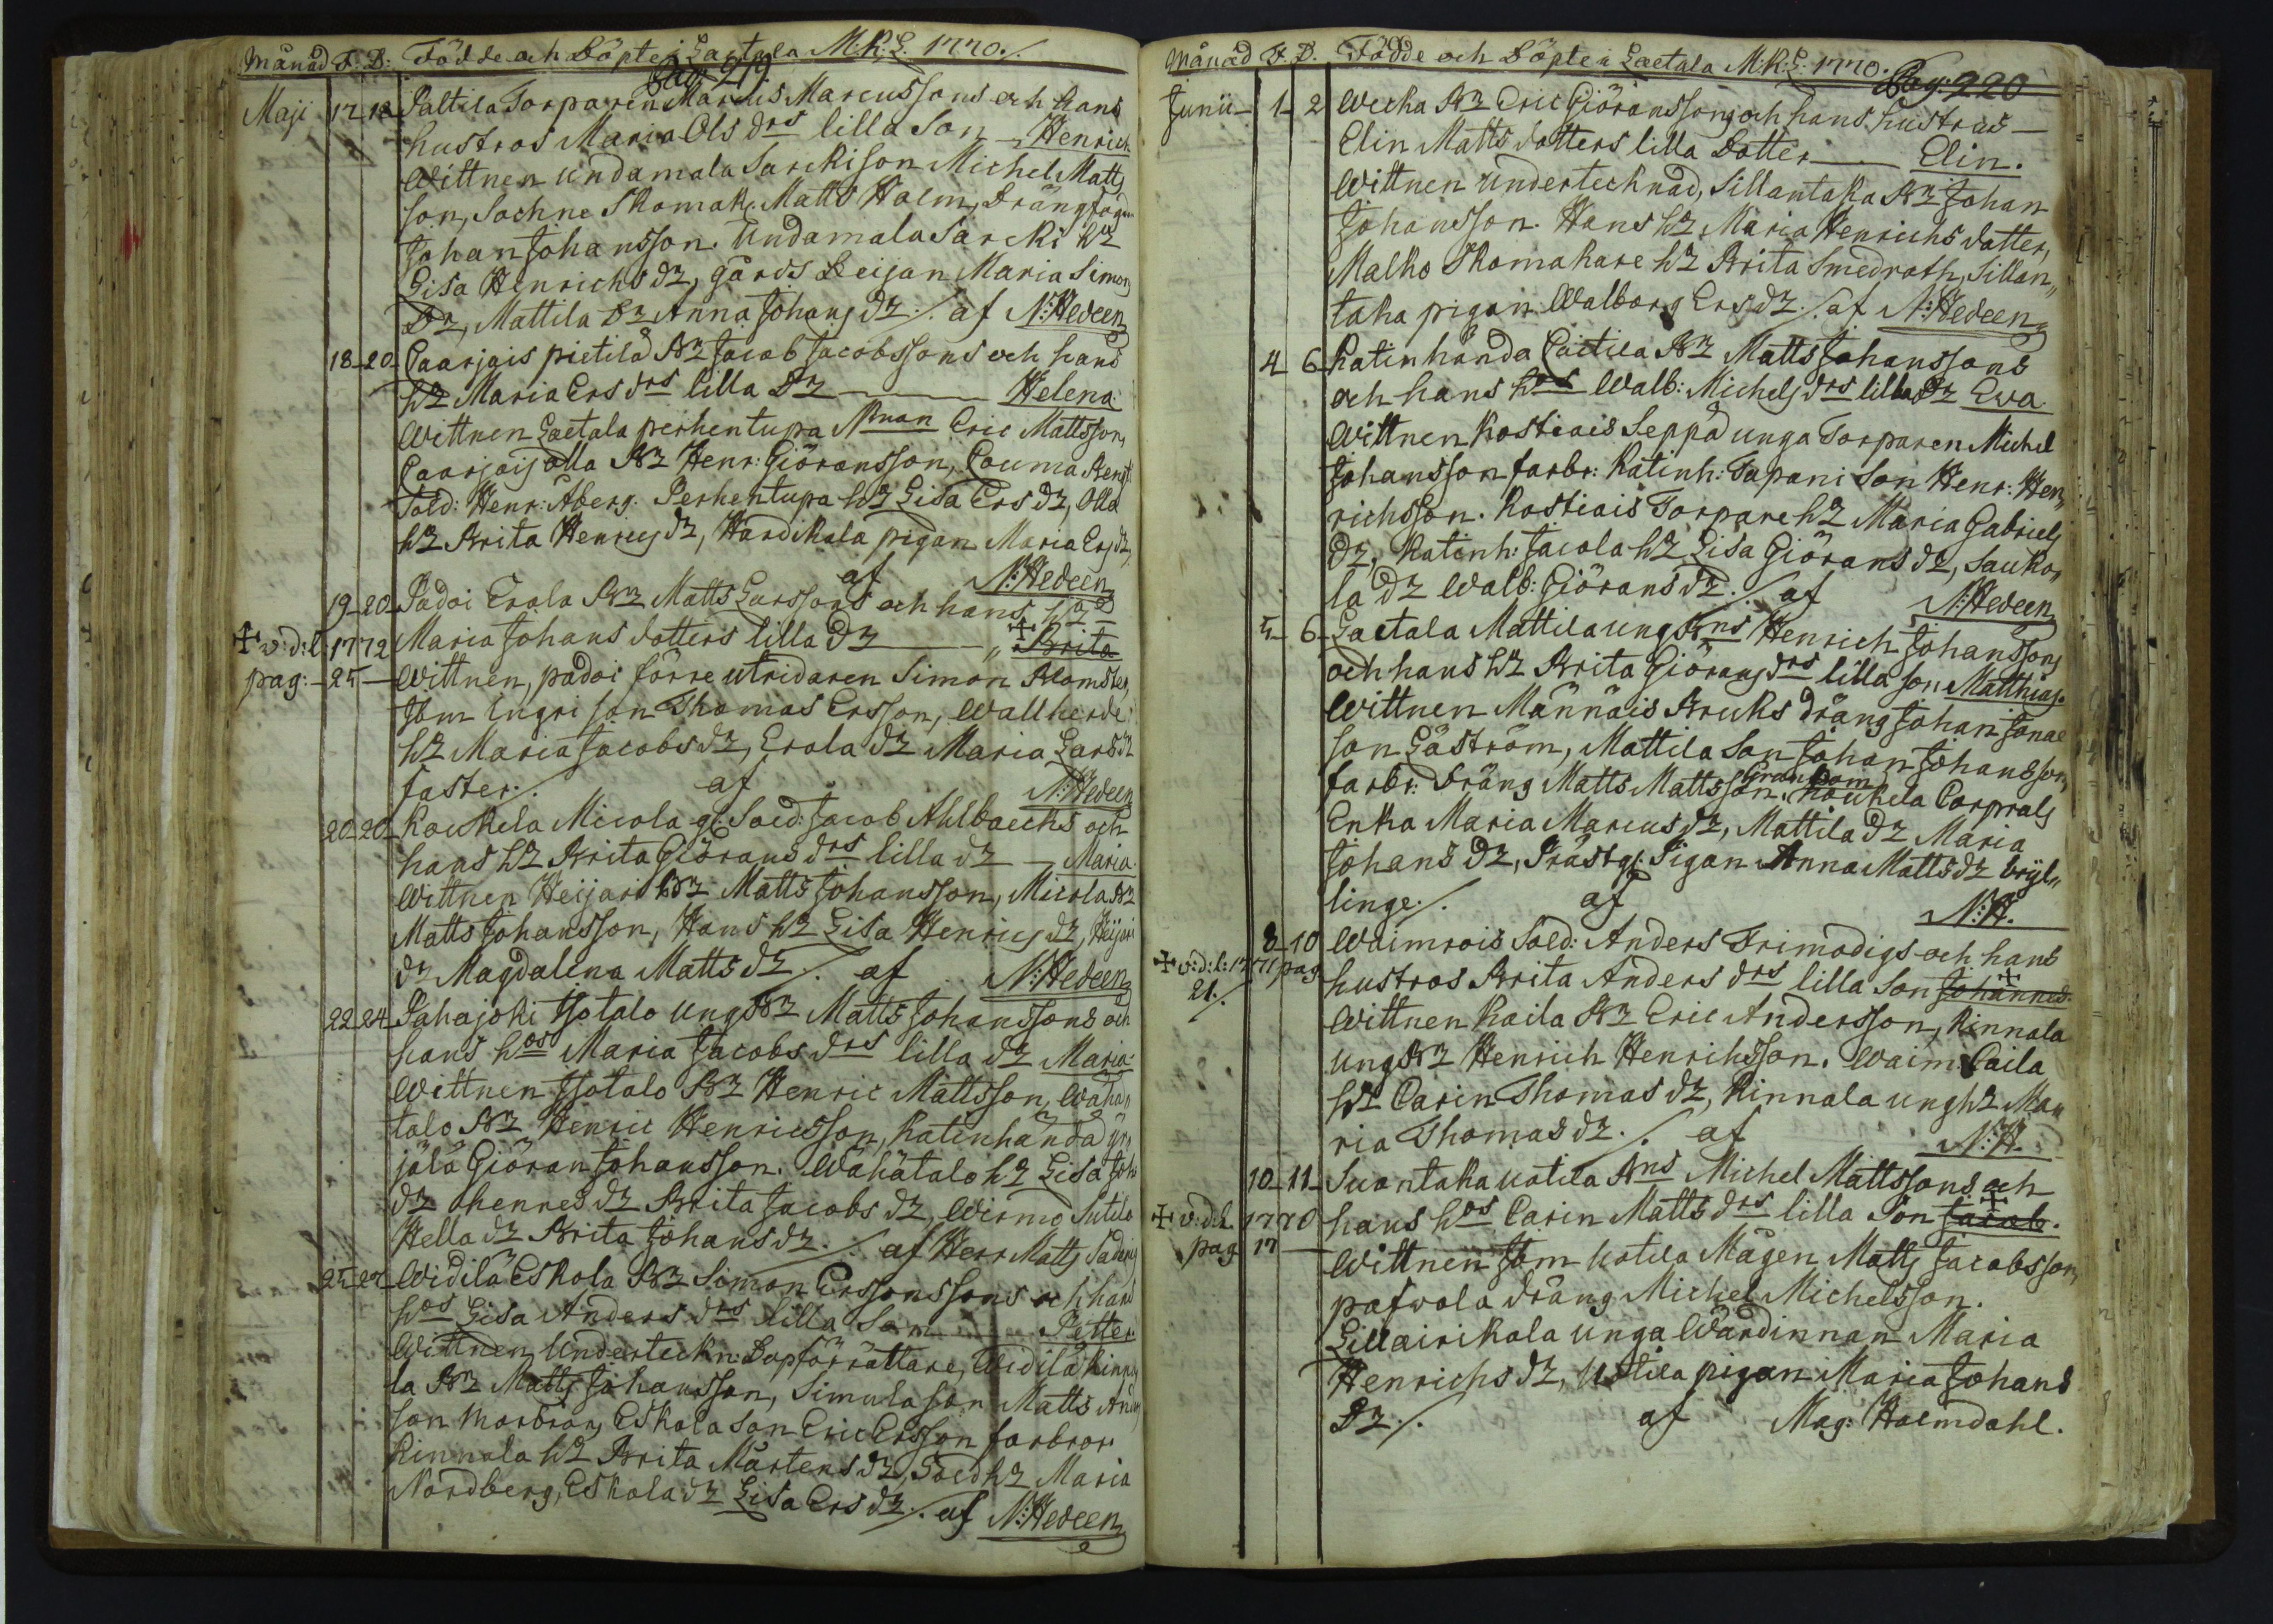 Månad F. D. Födde och Döpte i Laetala M:K:L 1770./.
Pag 219
Maji 17 18 Paltila Torparen Marcus Marcussons och hans
hustros Maria Ols drs lilla Son Henrich
Wittnen Undamala Sarcki son Michel Matts
son, Sochne Skomak. Matts Holm, Drängfogd
Johan Johansson. Undamala Sarcki hu
Lisa Henrichs dr, gårds Deijan Maria Simons
Dr, Mattila Dr Anna Johans dr ./. af N:Hedeen
18-20 Caarjais pietilä Br Jacob Jacobssons och hans
hr Maria Ers drs lilla Dr Helena
Wittnen Laetala perhentupa Eric Mattsson,
Caarjois olla Br Henr: Giöransson, Couma Reng
Sold: Henr: Åberg. Perhentupa hr Lisa Ers dr, Olla
hr Brita Henrics dr, Hardikala pigan Maria Ers dr,
af N:Hedeen
19-20 Padoi Erola Br Matts Larssons och hans
✝ v:d:l: 1772 Maria Johans dotters lilla dr ✝ Brita
pag: 25 Wittnen, padoi förre utridaren Simon Blomster,
Jbm Ingri son Thomas Ersson, Wallherde
hr Maria Jacobs dr, Erola dr Maria Lars dr
faster ./. af N:Hedeen
20-20 Koukela Micola gl. Sold: Jacob Ahlbaecks och
hans hr Brita Giörans drs lilla dr Maria.
Wittnen Heijari Br Matts Johansson, Micola Br
Matts Johansson, Hans hr Lisa Henrics dr, Heijari
dr Magdalena Matts dr ./. af N:Hedeen
22 24 Pahajoki Isotalo ung Br Matts Johanssons och
hans hos Maria Jacobs drs lilla dr Maria:
Wittnen Isotalo Br Henric Mattsson, Wähä
talo Br Henric Henricsson, Katinhända yr
jälä Giöran Johansson. Wähätalo hr Lisa Joh
dr hennes dr Brita Jacobs dr, Wirmo Sutila
Hella dr Brita Johans dr ./. af Herr Matts
25-27 Widilä Eskola Br Simon Erssonssons och hans
hos Lisa Anders drs lilla Son Petter
Wittnen Underteckn: Dopförrättare, Widilä Kinna
la Br Matts Johansson, Simula son Matts
son morbror, Eskola son Eric Ersson farbror
Kinnala hr Brita Mårtens dr, Sold hr Maria
Nordberg, Eskola dr Lisa Ers dr ./. af N:Hedeen
Månad F. D. Födde och Döpte i Laetala M:K:L: 1770.
Pag: 220
Junii 1 2 Wecka Br Eric Giöranssons och hans hustrus
Elin Matts dotters lilla Dotter Elin.
Wittnen Undertecknad, Sillantaka Br Johan
Johansson. Hans hr Maria Henrichs dotter,
Malko Skomakare hr Brita Smedroth, Sillan„
taka pigan Walborg Ers dr ./. af N:Hedeen
4 6 Katinhända Caitila Br Matts Johanssons
och hans hos Walb: Michels drs lilla Dr Ewa
Wittnen Kostiais Seppä unga Torparen Michel
Johansson farbr: Katinh: Tapani son Henr: Hen„
richsson. Kostiais Torpare hr Maria Gabriels
dr, Katinh: Jacola hr Lisa Giörans dr, Sauko„
la dr Walb: Giörans dr ./. af N:Hedeen
5 6 Laetala Mattila ung Bns Henrich Johanssons
och hans hr Brita Giörans drs lilla son Matthias.
Wittnen Männäis Bruks dräng Johan Jonae
son Gäström, Mattila Son Johan Johansson,
farbr: Dräng Matts Mattsson. Granbom Koukela Corprals
Enka Maria Marcus dr, Mattila dr Maria
Johans dr, Prästg: Pigan Anna Matts dr bryl„
linge ./. af N:H.
8 10 Waimrois Sold: Anders Frimodigs och hans
✝ v:d:l: 1771 pag 21./. hustros Brita Anders drs lilla Son ✝ Johannes
Wittnen Kaila Br Eric Andersson, Kinnala
ung Br Henrich Henrichsson. Waim: Caila
hr Carin Thomas dr, Kinnala ung hr Ma„
ria Thomas dr ./. af N:H.
10-11 Suontaka uotila Bns Michel Mattssons och
✝ v:d:l. 1770 hans hos Carin Matts drs lilla Son ✝ Jacob.
pag 17 Wittnen Jbm uotila Mågen Matts Jacobsson,
pafwola dräng Michel Michelsson.
Lillairikala unga Wärdinnan Maria
Henrichs dr, Uotila pigan Maria Johans
Dr ./. af Mag: Holmdahl.